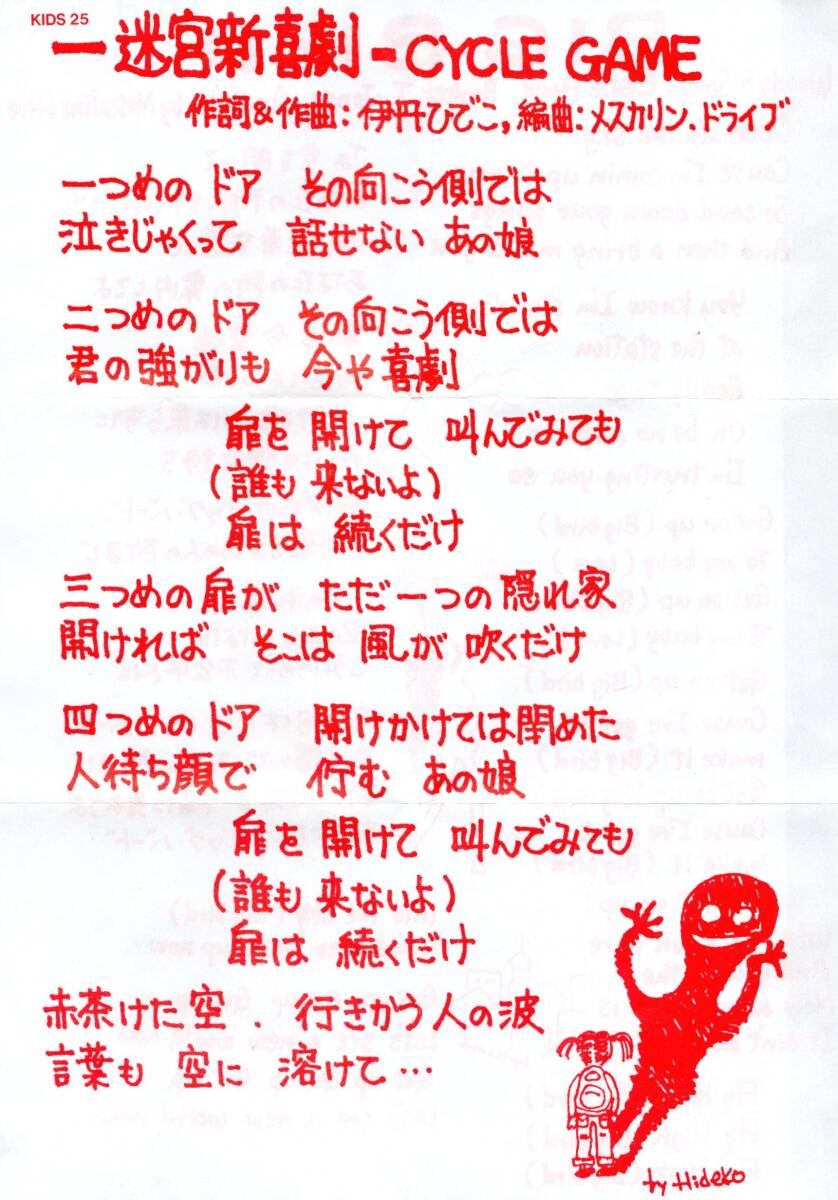 KIDS 25
一迷宮新喜劇-CYCLE GAME
作詞&作曲:伊丹ひでこ,編曲:メスカリン.ドライブ
一つめの ドア その向こう側では
泣きじゃくって 話せない あの娘
二つめの ドア その向こう側では
君の強がりも 今や喜劇
扉を 開けて 叫んでみても
(誰も 来ないよ)
扉は 続くだけ
三つめの扉が ただ一つの隠れ家
開ければ そこは 風が 吹くだけ
四つめの ドア 開けかけては閉めた
人待ち顔で 佇む あの娘
扉を 開けて 叫んでみても
(誰も 来ないよ)
扉は 続くだけ
赤茶けた空 . 行きかう人の波
言葉も 空に 溶けて...
by Hideko